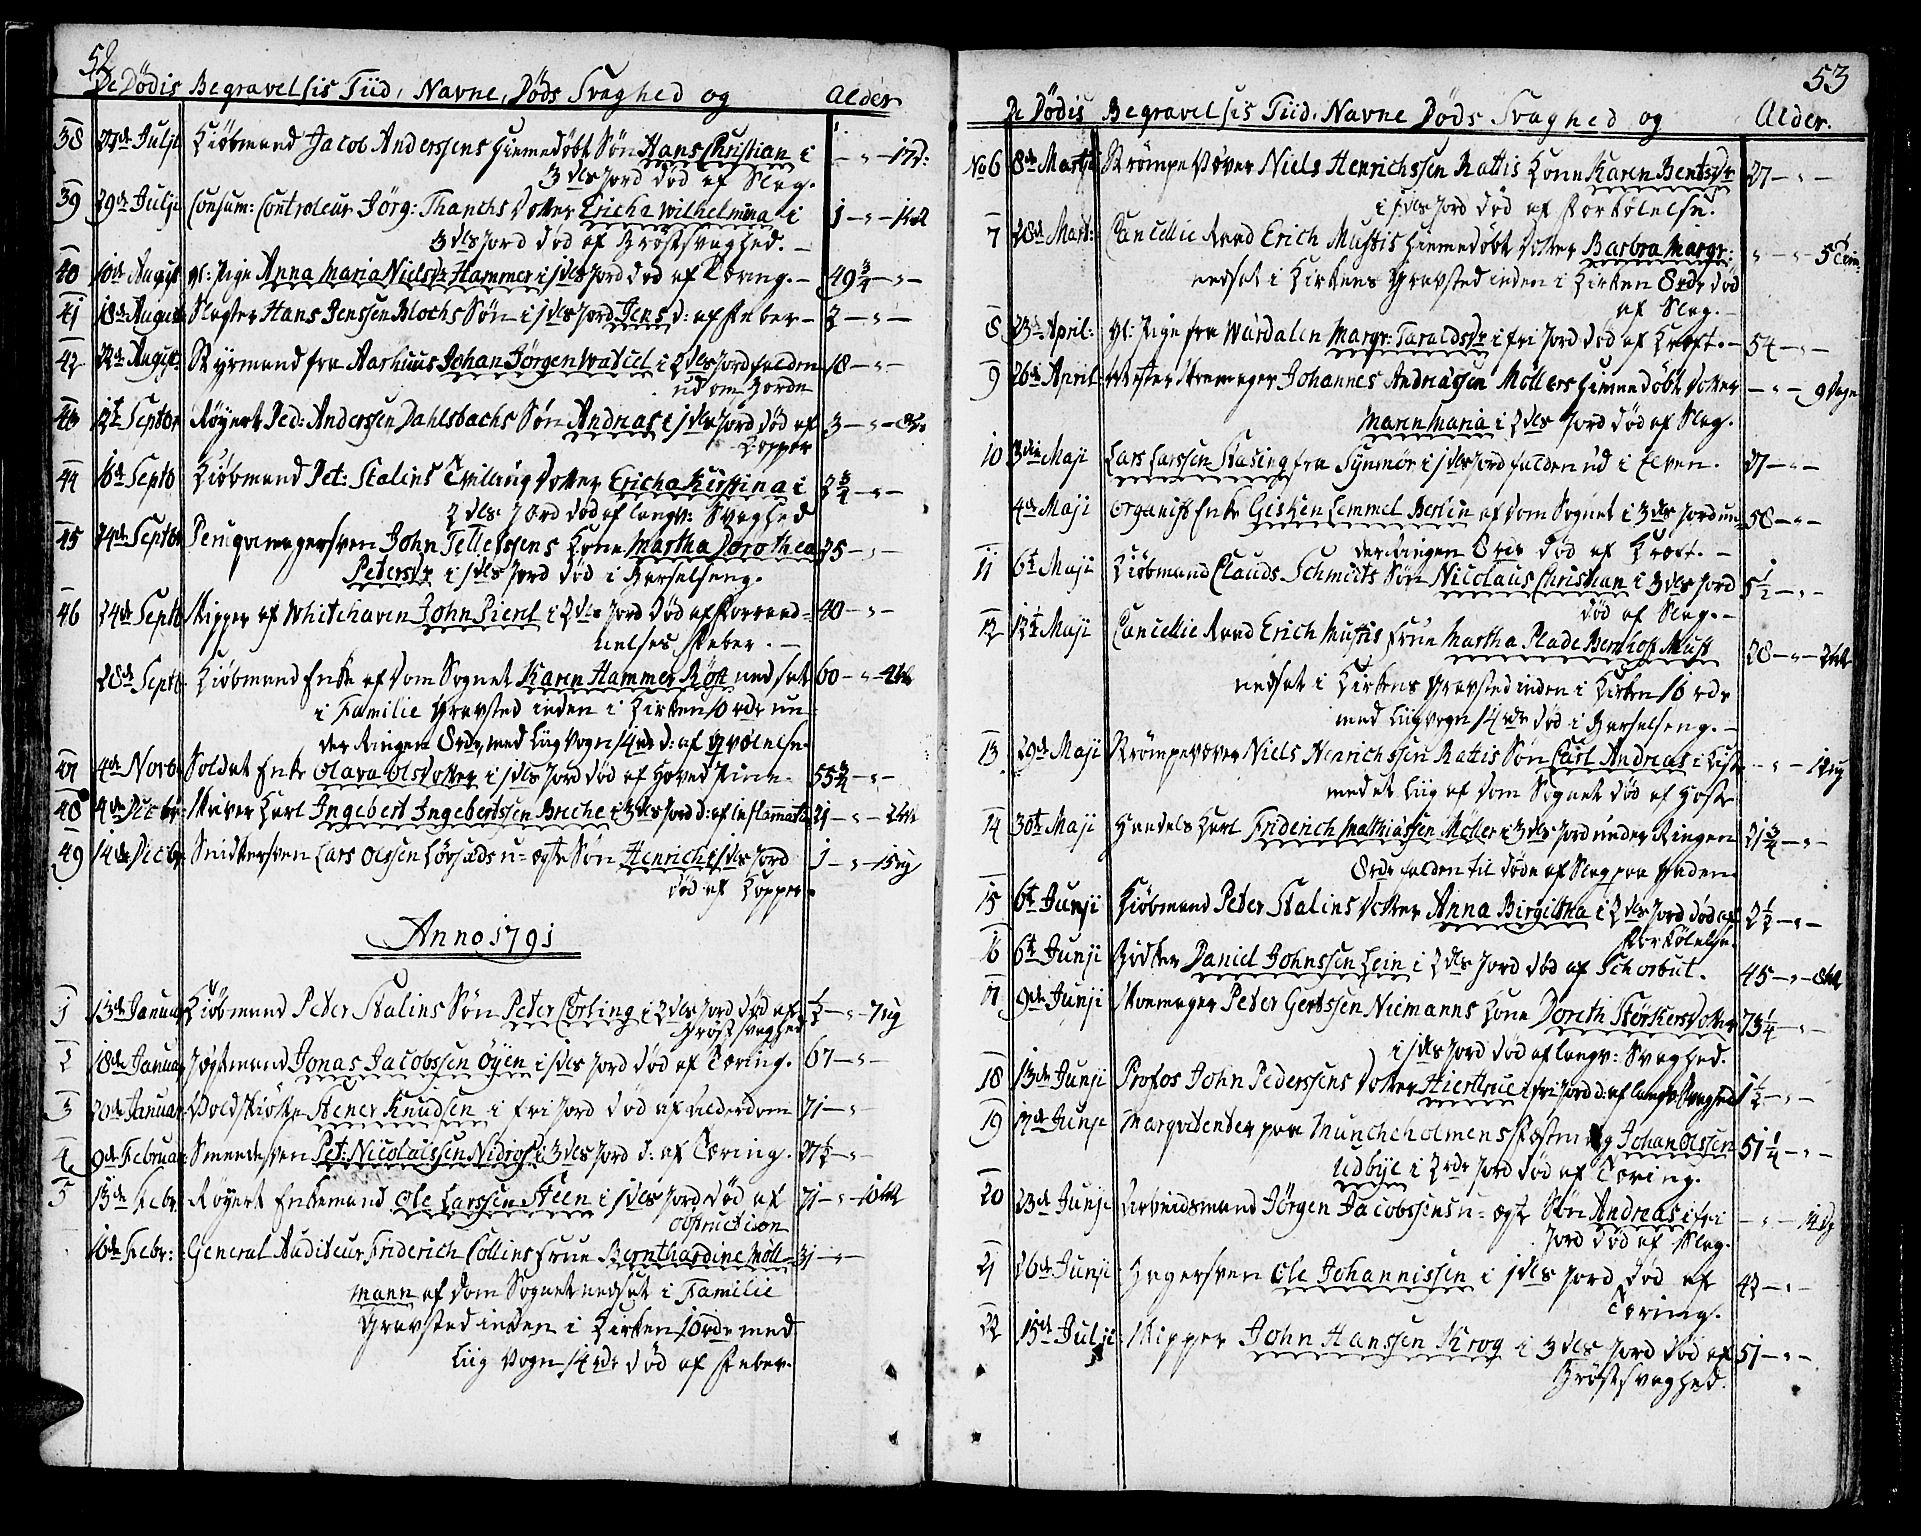 52
De Dødis Begravelsis Tiid, Navne, Døds Svaghed og Alder
38 27de Julji Kiøbmand Jacob Anderssens hiemedøbt Søn Hans Christian i — " — 17 d:
3 dls Jord død af Slag.
39 29de Julji Consum: Controleur Jörg: Thanchs Dotter Ericha Wilhelmina i 1 — " —
3 dls Jord død af Brøstsvaghed. —
40 10de August gl: Pige Anna Maria Nielsdr Hammer i 1 dls Jord død af Tæring. — 49 3/4 — " —
41 18de August Slagter Hans Jenssen Blochs Søn i 1 dls Jord Jens d: af Feber — 2 — " —
42 22de August: Styrmand fra Aarhuus Johan Jörgen Wadel i 2 dls Jord falden 18 — " —
ud om Borde
43 12t Septbr Røgert Ped: Anderssen Dahlsbachs Søn Andreas i 1 dls Jord død af 3 — " —
Kopper
44 16de Septb Kiøbmand Pet: Stalins Tvilling Dotter Ericha Kistina i 2 3/4 — " —
2 dls Jord død af langv: Svaghed
45 24de Septbr Peruqvemagersven John Tellefssens Kone Martha Dorothea 35 — " —
Petersdr i 1 dls Jord død i Barselseng.
46 24de Septb Skipper af Whitehaven John Pienl i 2 dls Jord død af Forraad= 40 — " —
nelses Feber. —
28de Septb Kiøbmand Enke af Dom Sognet Karen Hammer Røst nedsat 60 — " —
i Familie Gravsted inden i Kirken 10 rdr un=
der Ringen 8 rdr, med Liig Vogn 14 rd d: af
47 4de Novbr Soldat Enke Olava Olsdotter i 1 dls Jord død af Hoved Pine. 55 3/4 — " —
48 4de Decbr: Skriver Karl Ingebert Ingebertssen Breche i 3 dls Jord d: af inflammation 21 — " —
49 14de Decbr Snidkersven Lars Olssen u=ægte Søn Henrich i 1 dls Jord 1 — " — 15 ug
død af Kopper.
Anno 1791
1 13de Januar Kiøbmand Peter Stalins Søn Peter Cörting i 2 dls Jord død af 1/2 — " — 7 ug
Brøstsvaghed
2 18de Januar Jægtemand Jonas Jacobssen Øyen i 1 dls Jord død af Tæring. 67 — " —
3 20de Januar Knudsen i fri Jord død af Alderdom 71 — " —
4 9de Februar Smeedesven Pet: Nicolaissen Nidros i 3 dls Jord d: af Tæring. 27 1/2 — " —
5 15de Febr. Røgert Enkemand Ole Larssen Steen i 1 dls Jord død af 71 — " —
obstruction
16de Febr: General Auditeur Friderich Collins Frue Bernthardine Möll= 31 — " —
mann af Dom Sognet nedsat i Familie
Gravsted inden i Kirken 10 rdr med
Liig Vogn 14 rdr død af Feber.
53
De Dødis Begravelsis Tiid, Navne Døds Svaghed og Alder.
No 6 8de Martji Strömpe Væver Niels Henrichssen Rattis Kone Karen Bentsdr 27 — " —
i 1 dls Jord død af Forkølelse.
7 28de Mart: Cancellie Raad Erich Mustis hiemedøbt Dotter Barbra Margr: " — " 5 Tim:
nedsat i Kirkens Gravsted inden i Kirken 8 rdr død
af Slag. —
8 23de April: gl: Pige fra Wårdalen Margr: Taraldsdr i fri Jord død af Kræft. — 54 — " —
9 26de April Mester Skræmager Johannes Andreassen Møllers hiemedøbt Dotter — " — 9 Dage
Maren Maria i 2 dls Jord død af Slag.
10 3die Maji Lars Larssen Stasing fra Synmør i 1 dls Jord falden ud i Elven. 27 — " —
4de Maji Organist Enke Gisken Lemmel Berlin af Dom Sognet i 3 dls Jord un 58 — " —
der Ringen 8 rdr død af Kræft. —
11 6t Maji Kiøbmand Clauds Schmidts Søn Nicolaus Christian i 3 dls Jord 5 1/2 — " —
død af Slag. —
12 12t Maji Cancellie Raad Erich Mustis Frue Martha Plade Bernhoft Must 28 — " —
nedsat i Kirkens Gravsted inden i Kirken 10 rdr
med Liigvogn 14 rdr død i Barselseng. —
13 29de Maji Strömpevæver Niels Henrichssen Rattis Søn Carl Andreas i Kiste — " —
med et Liig af Dom Sognet død af Hoste
14 30t Maji Handels Karl Friderich Mathiassen Møller i 3 dls Jord under Ringen 21 3/4 — " —
8 rdr falden til døde af Slag paa Gaden.
15 6t Junji Kiøbmand Peter Stalins Dotter Anna Birgiltha i 2 dls Jord død af 2 1/2 — " —
Forkølelse.
16 6t Junji Bödker Daniel Johnssen Lein i 2 dls Jord død af Schorbut. 45 — " —
17 9de Junji Skomager Peter Gertssen Niemanns Kone Doreth Størkersdotter 73 1/4 — " —
i 1 dls Jord død af langv: Svaghed.
18 13de Junji Profos John Pederssens Dotter Hiertrue i fri Jord d: af langv Svaghed 1 1/2 — " —
19 17de Junji Marqvetender paa Munckholmens Fæstning Johan Olssen 51 1/4 — " —
Udbye i 2 rdr Jord død af Tæring.
20 23de Junji Arbeidsmand Jörgen Jacobssens u=ægte Søn Andreas i fri — " — 14 dg
Jord død af Slag.
21 26de Junji Hagersven Ole Johannissen i 1 dls Jord død af 42 — " —
Tæring.
22 15de Julji Skipper John Hanssen Krog i 3 dls Jord død af 51 — " —
Brøstsvaghed.